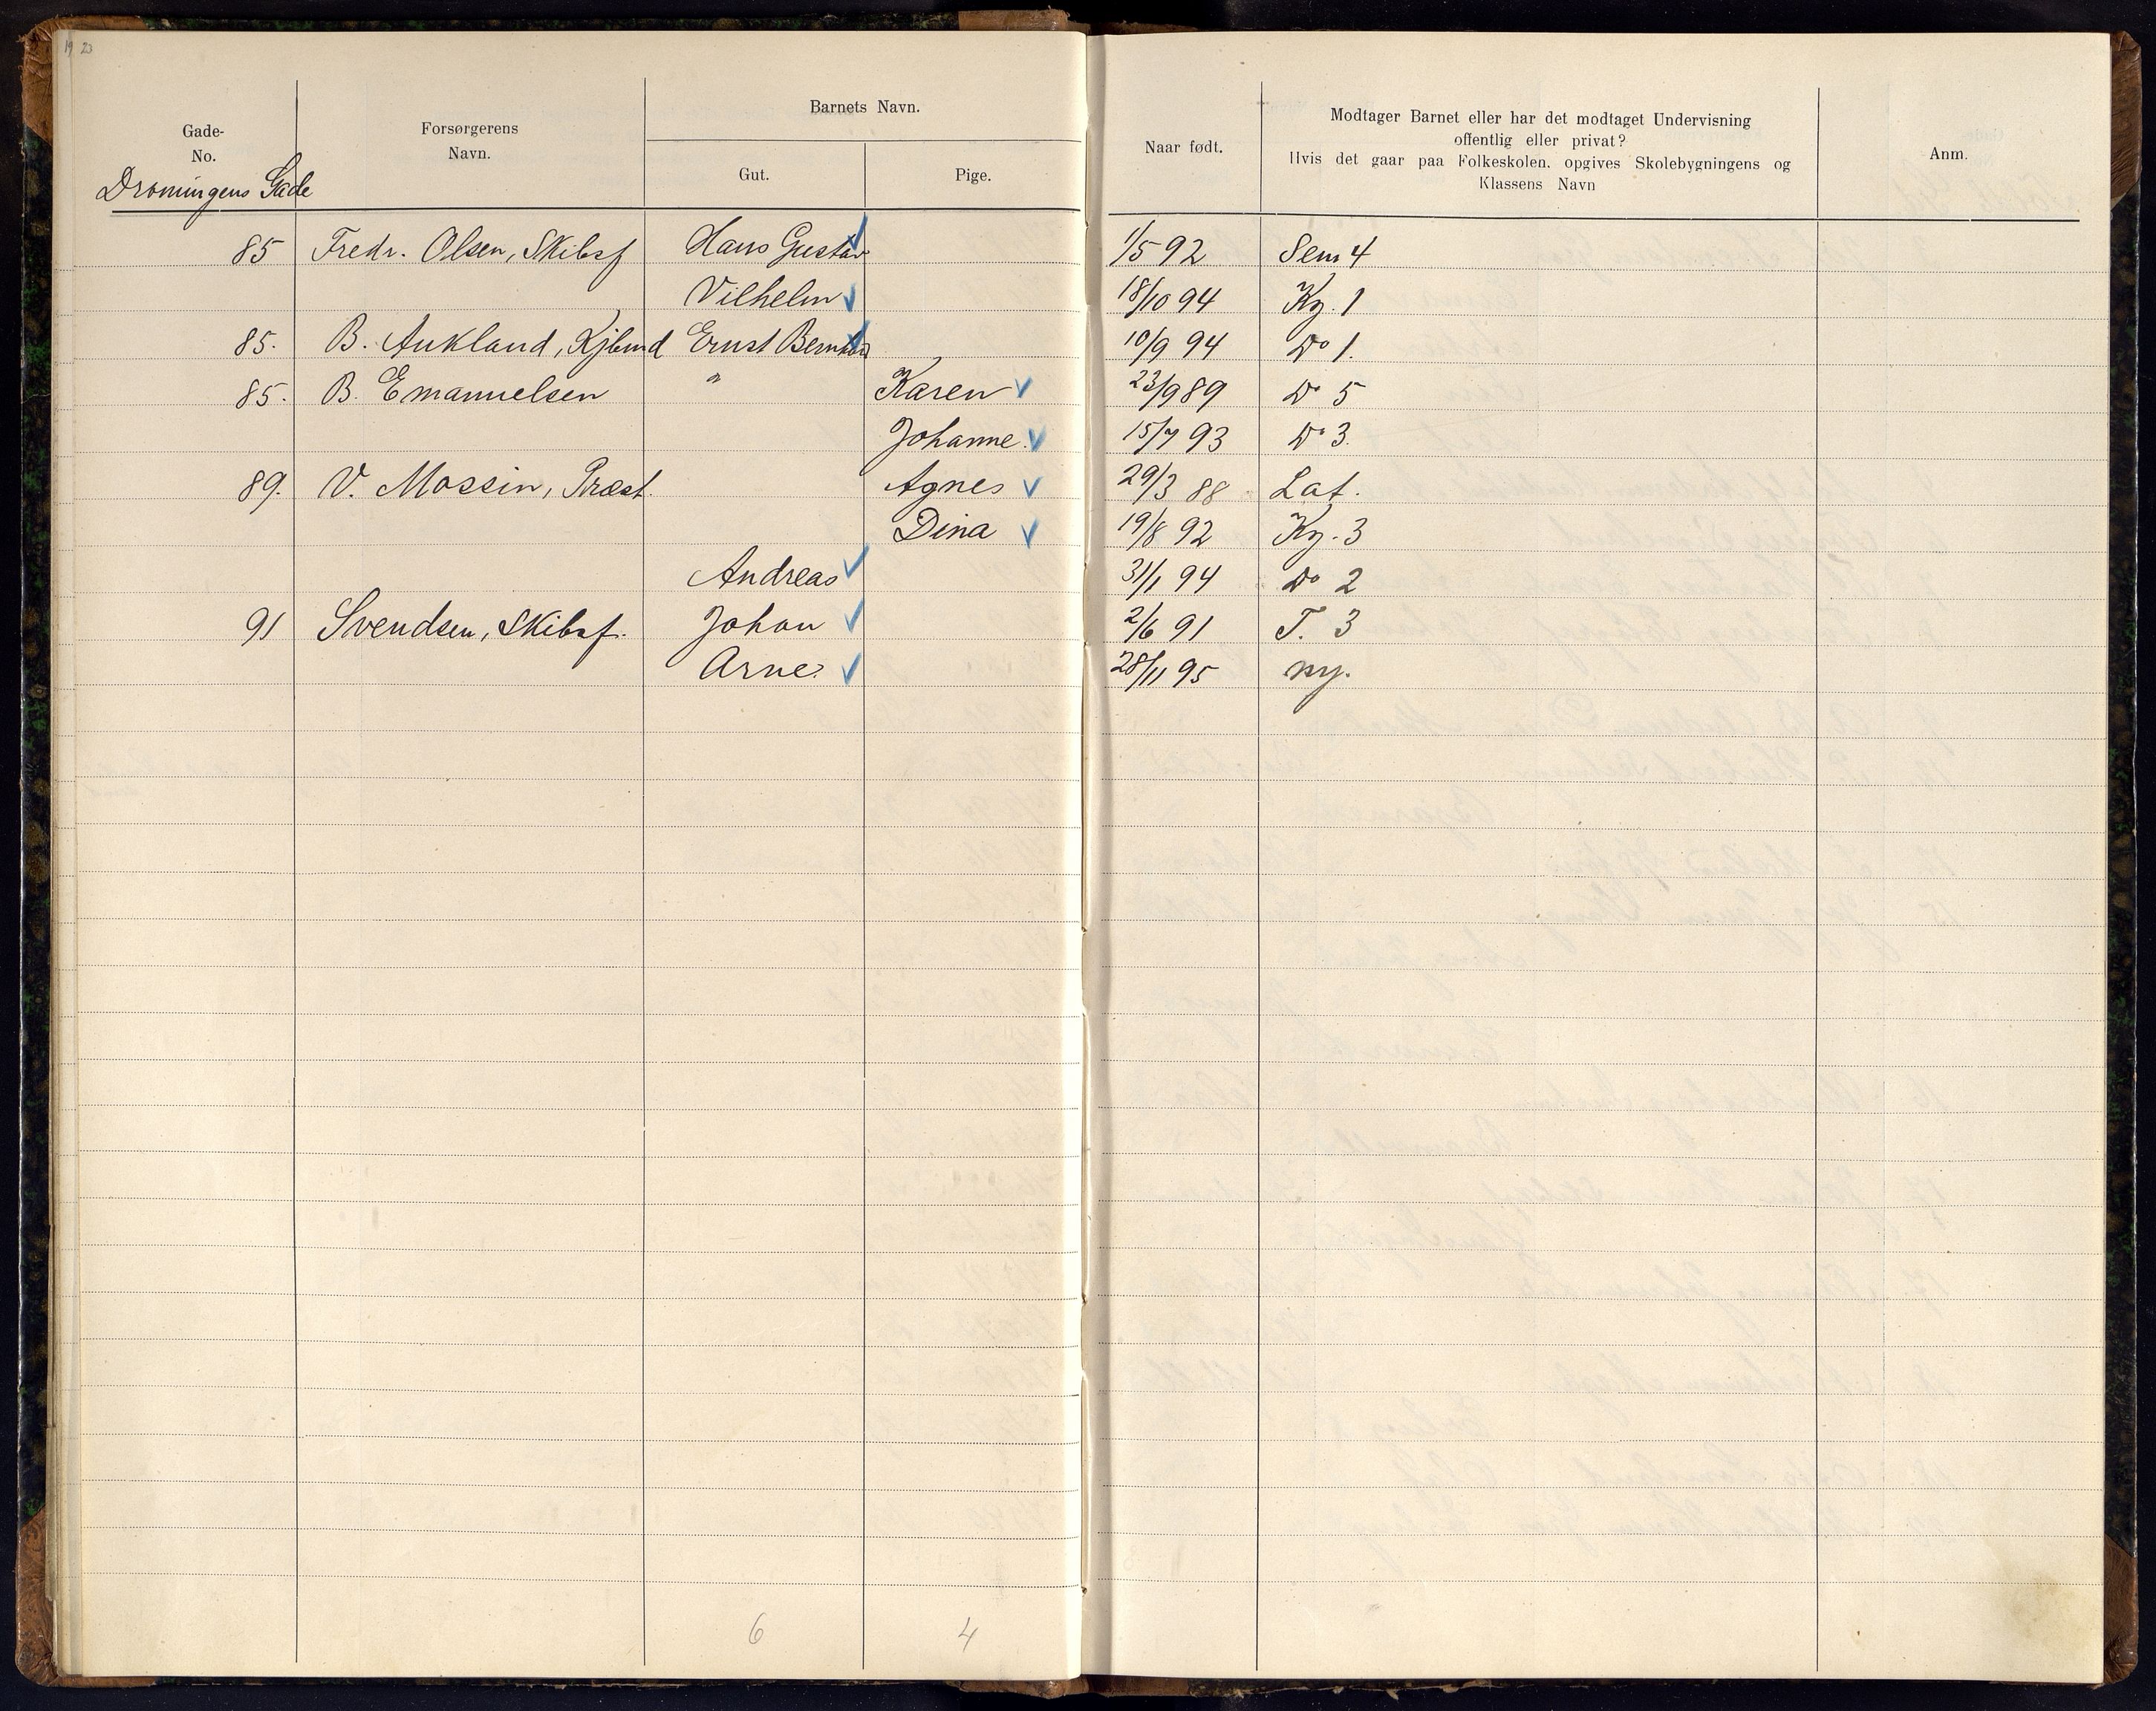 19 23
Gade-
No.
Forsørgerens
Navn.
Barnets Navn.
Gut.
Pige.
Naar født.
Modtager Barnet eller har det modtaget Undervisning
offentlig eller privat?
Hvis det gaar paa Folkeskolen. opgives Skolebygningens og
Klassens Navn
Anm.
Dronningens Gade
85 Fredr. Olsen, Skibsf Hans Gustav 1/5 92 Sem 4
Vilhelm 18/10 94 Kg. 1
85. B. Aukland, Kjbmd Ernst Bernhard 10/9 94 Do 1.
85. B. Emanuelsen " Karen 23/9 89 Do 5
Johanne. 15/7 93 Do 3.
89. V. Mossin, Præst. Agnes 29/3 88 Lat.
Dina 19/8 92 Kg. 3
Andreas 31/1 94 Do 2
91 Svendsen, Skibsf. Johan 2/6 91 T. 3
Arne 28/11 95 ny.
6 4